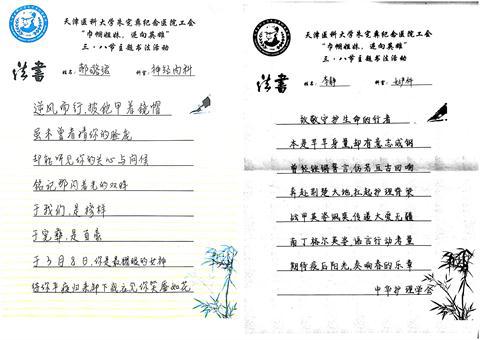 天津医科大学朱宪彝纪念医院工会
“巾帼姐妹，逆向英雄”
三·八节主题书法活动
洪书
姓名：
科室：神经内科
逆风而行，披他甲着镜帽
虽未曾看清你的脸庞
却能听见你的关心与问候
铭记那闪着光的双眸
于我们，是榜样
于宪彝，是自豪
于3月8日，你是最耀眼的女神
待你平疫归来卸下战衣见你笑靥如花
天津医科大学朱宪彝纪念医院工会
“巾帼姐妹，逆向英雄”
三·八节主题书法活动
洪书
姓名：李静
科室：
致敬守护生命的行者
本是芊芊身量，却有意志成钢
曾经铿锵誓言，仿若亘古回响
奔赴荆楚大地，扛起护理脊梁
战甲英姿飒爽，传递大爱无疆
南丁格尔英姿，诺言行动者量
期待疫后阳光，奏响春的乐章
中华护理学会